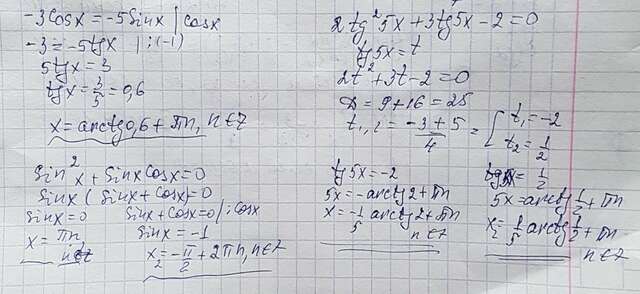 -3cosx = -5sinx | cosx
-3 = -5tgx | :(-1)
5tgx = 3
tgx = 3/5 = 0,6
x = arctg0,6 + πn, n∈z
sin²x + sinxcosx = 0
sinx (sinx + cosx) = 0
sinx = 0 sinx + cosx = 0/:cosx
x = πn, sinx = -1
n∈z x₂ = -π/2 + 2πn, n∈z
2tg²5x + 3tg5x - 2 = 0
tg5x = t
2t² + 3t - 2 = 0
D = 9 + 16 = 25
t₁,₂ = (-3 ± 5)/4 = [ t₁ = -2
t₂ = 1/2
tg5x = -2
5x = -arctg2 + πn
x = -1/5 arctg2 + πn
n∈z
= 1/2
5x = arctg 1/2 + πn
x₂ = 1/5 arctg 1/2 + πn
n∈z